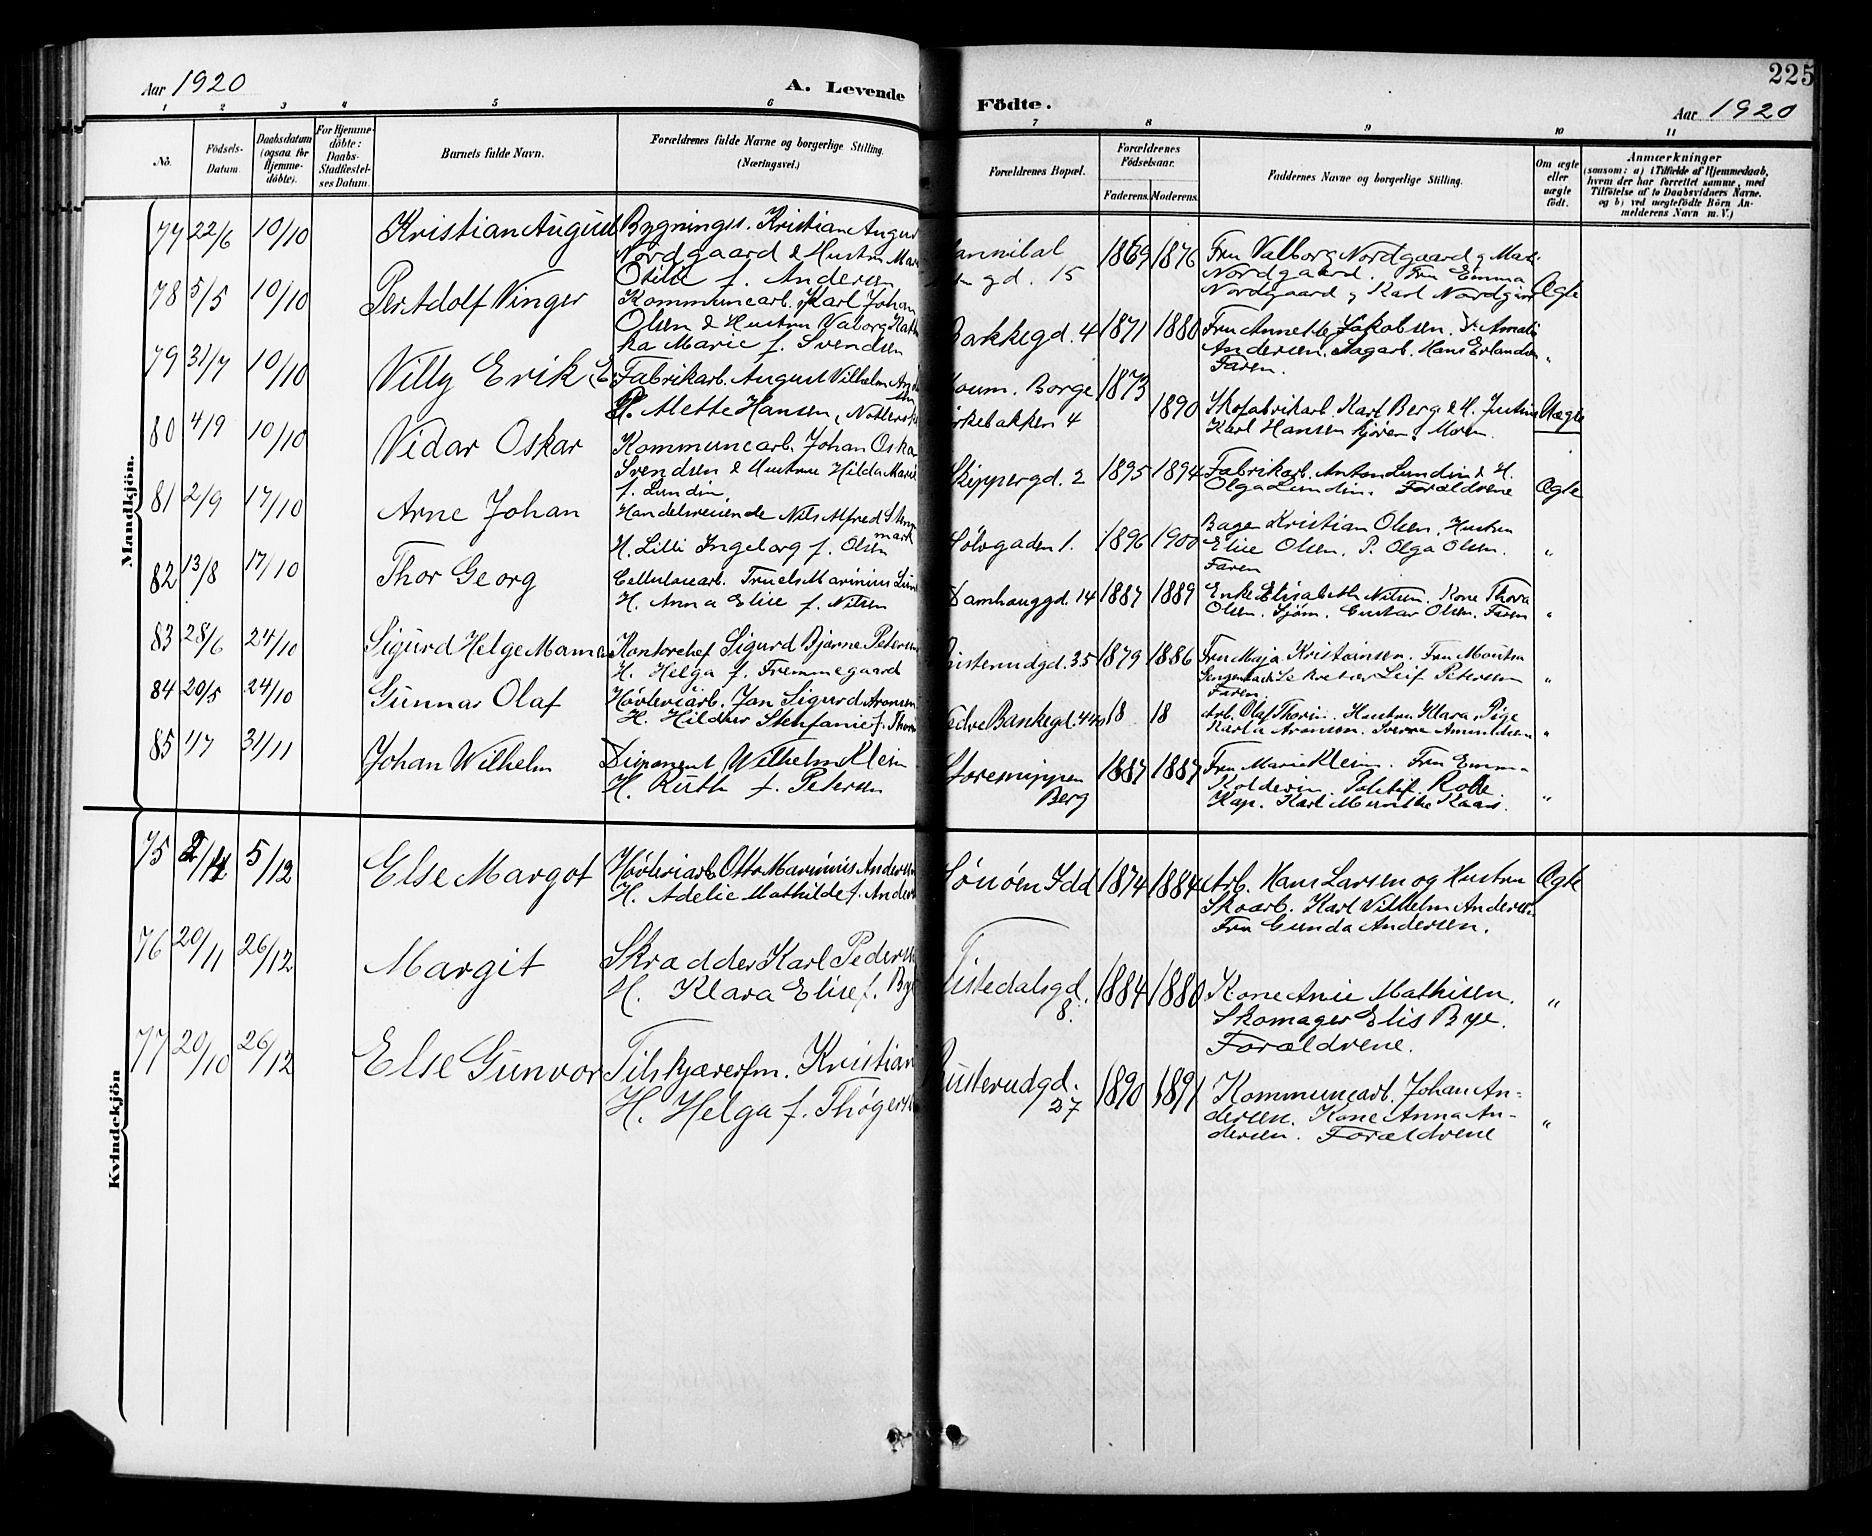 225
Aar 1920
A. Levende Födte.
Aar 1920
1 2 3 4 5 6 7 8 9 10 11
No.
Födsels-Datum.
Daabsdatum (ogsaa for Hjemme-döbte).
For Hjemme-döbte: Daabs-Stadfæstel-ses Datum.
Barnets fulde Navn.
Forældrenes fulde Navne og borgerlige Stilling.
(Næringsvei.)
Forældrenes Bopæl.
Forældrenes Födselsaar.
Faderens. Moderens.
Faddernes Navne og borgerlige Stilling.
Om ægte eller uægte födt.
Anmærkninger
(saasom: a) i Tilfælde af Hjemmedaab,
hvem der har forrettet samme, med
Tilföielse af to Daabsvidners Navne.
og b) ved uægtefödte Börn An-
melderens Navn m. V.)
Mandkjön.
77 22/6 10/10 Kristian August Bygningss. Kristian Augus
Nordgaard & Hustru Mar
Otilie f. Andersen
annibal
gd. 15
1869 1876 Fru Valborg Nordgaard
Nordgaard. Fru Emma
Nordgaard Karl Nordgaar Ægte
78 5/5 10/10 Per Adolf Vinger Kommunearb. Karl Johan
Olsen & Hustru Valborg Kath
ka Marie f. Svendsen
Bakkegd. 4 1871 1880 Fru Annette Jakobsen.
Andersen. Sagarb. Hans Erlandsen
Faren. "
79 31/7 10/10 Villy Erik Fabrikarb. August Vilhelm
P. Alette Hansen,
Borge
kebakken 4
1873
1890 Skofabrikarb. Karl Berg & H.
Karl Hansen Moren. Uægte
80 4/9 10/10 Vidar Oskar Kommunearb. Johan Oska
Svendsen & Hustru Hilda Marie
f. Lundin,
Skippergd. 2 1895 1894 Fabrikarb. Anton Lundin & H.
Olga Lundin. Forældrene Ægte
81 2/9 17/10 Arne Johan Handelsreisende Nils Alfred
mark
H. Lilli Ingeborg f. Olsen
Sølvgaden 1. 1896 1900 Bager Kristian Olsen, Hustru
Elise Olsen, P. Olga Olsen.
Faren "
82 13/8 17/10 Thor Georg Cellulosearb. Truels Marinius Lun
H. Anna Elise f. Nilsen
Damhauggd. 14 1887 1889 Enke Elisabeth Nilsen. Kone Thora
Olsen. Sjøm. Gustav Olsen. Faren "
83 28/6 24/10 Sigurd Helge Kontorchef Sigurd Bjarne Petersen
H. Helga f. Fremmegaard
usterudgd. 35 1879 1886 Fru Maja Kristiansen. Fru
Sekretær Leif Petersen
Faren "
84 20/5 24/10 Gunnar Olaf Høvleriarb. Jan Sigurd Aronsen
H. Hildur Stenfanie f. Thor
edre Bankegd. 44 18 18 Arb. Olaf Thorin. Hustru Klara, Pige
Karla Aronsen. Sverre Amundsen "
85 1/7 31/11 Johan Wilhelm Disponent Wilhelm Klein
H. Ruth f. Petersen
Storesnippen
Berg
1887 1887 Fru Marie Klein. Fru Emma
Kap. Karl "
Kvindekjön
75 2/4 5/12 Else Margot Høvleriarb. Otto Marinius Andersen
H. Adelie Mathilde f. Anders
Idd 1874 1884 Arb. Hans Larsen og Hustru
Skoarb. Karl Vilhelm Andersen
Fru Gunda Andersen. Ægte
76 20/11 26/12 Margit Skrædder Karl Pedersen
H. Klara Elise f. Bye
Tistedalsgd.
8.
1884 1880 Kone Anie Mathisen.
Skomager Elis Bye.
Forældrene. "
77 20/10 26/12 Else Gunvor Tilskjærerfm. Kristian
H. Helga f. Thøgers
usterudgd.
27
1890 1891 Kommunearb. Johan An-
dersen. Kone Anna An-
dersen. Forældrene "